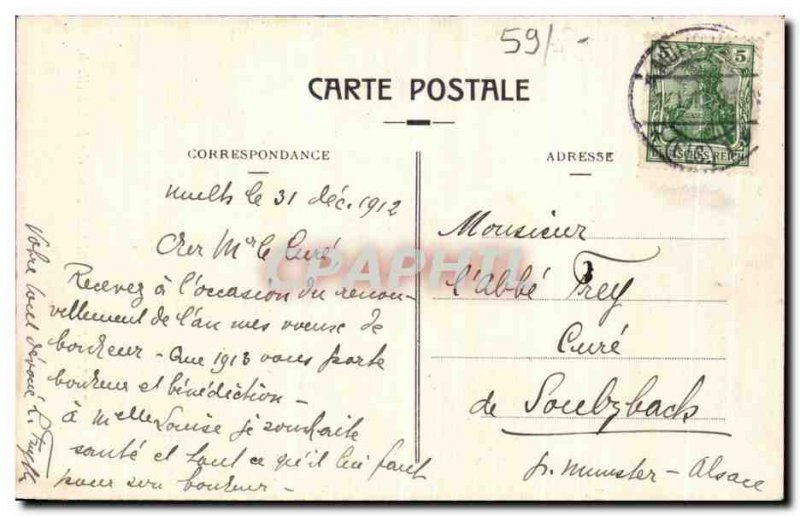 59/-
CARTE POSTALE
CORRESPONDANCE
le 31 déc. 1912
Cher Mr le Curé
Recevez à l'occasion du renou-
vellement de l'an mes voeux de
bonheur - Que 1913 vous porte
bonheur et bénédiction -
à Melle Louise je souhaite
santé et tout ce qu'il lui faut
pour son bonheur -
Votre tout dévoué
ADRESSE
Monsieur
l'abbé Frey
Curé
de Soultzbach
p. Munster - Alsace
5
REICH
CPAPHIL